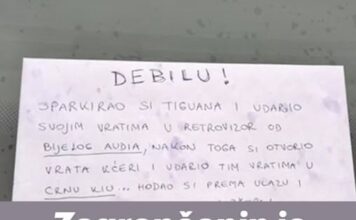 DEBILU!
SPARKIRAO SI TIGUANA I UDARIO
SVOJIM VRATIMA U RETROVIZOR OD
BIJELOG AUDIA, NAKON TOGA SI OTVORIO
VRATA KĆERI I UDARIO TIM VRATIMA U
CRNU KIU... HODAO SI PREMA ULAZU I